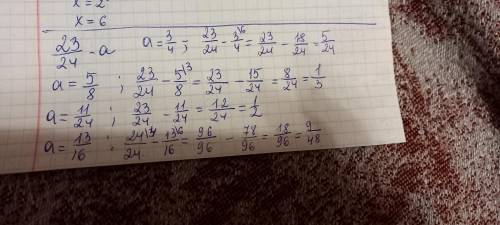 x = 2
x = 6
23/24 - a a = 3/4 ; 23/24 - 3\6/4 = 23/24 - 18/24 = 5/24
a = 5/8 ; 23/24 - 5\3/8 = 23/24 - 15/24 = 8/24 = 1/3
a = 11/24 ; 23/24 - 11/24 = 12/24 = 1/2
a = 13/16 ; 24\4/24 - 13\6/16 = 96/96 - 78/96 = 18/96 = 9/48